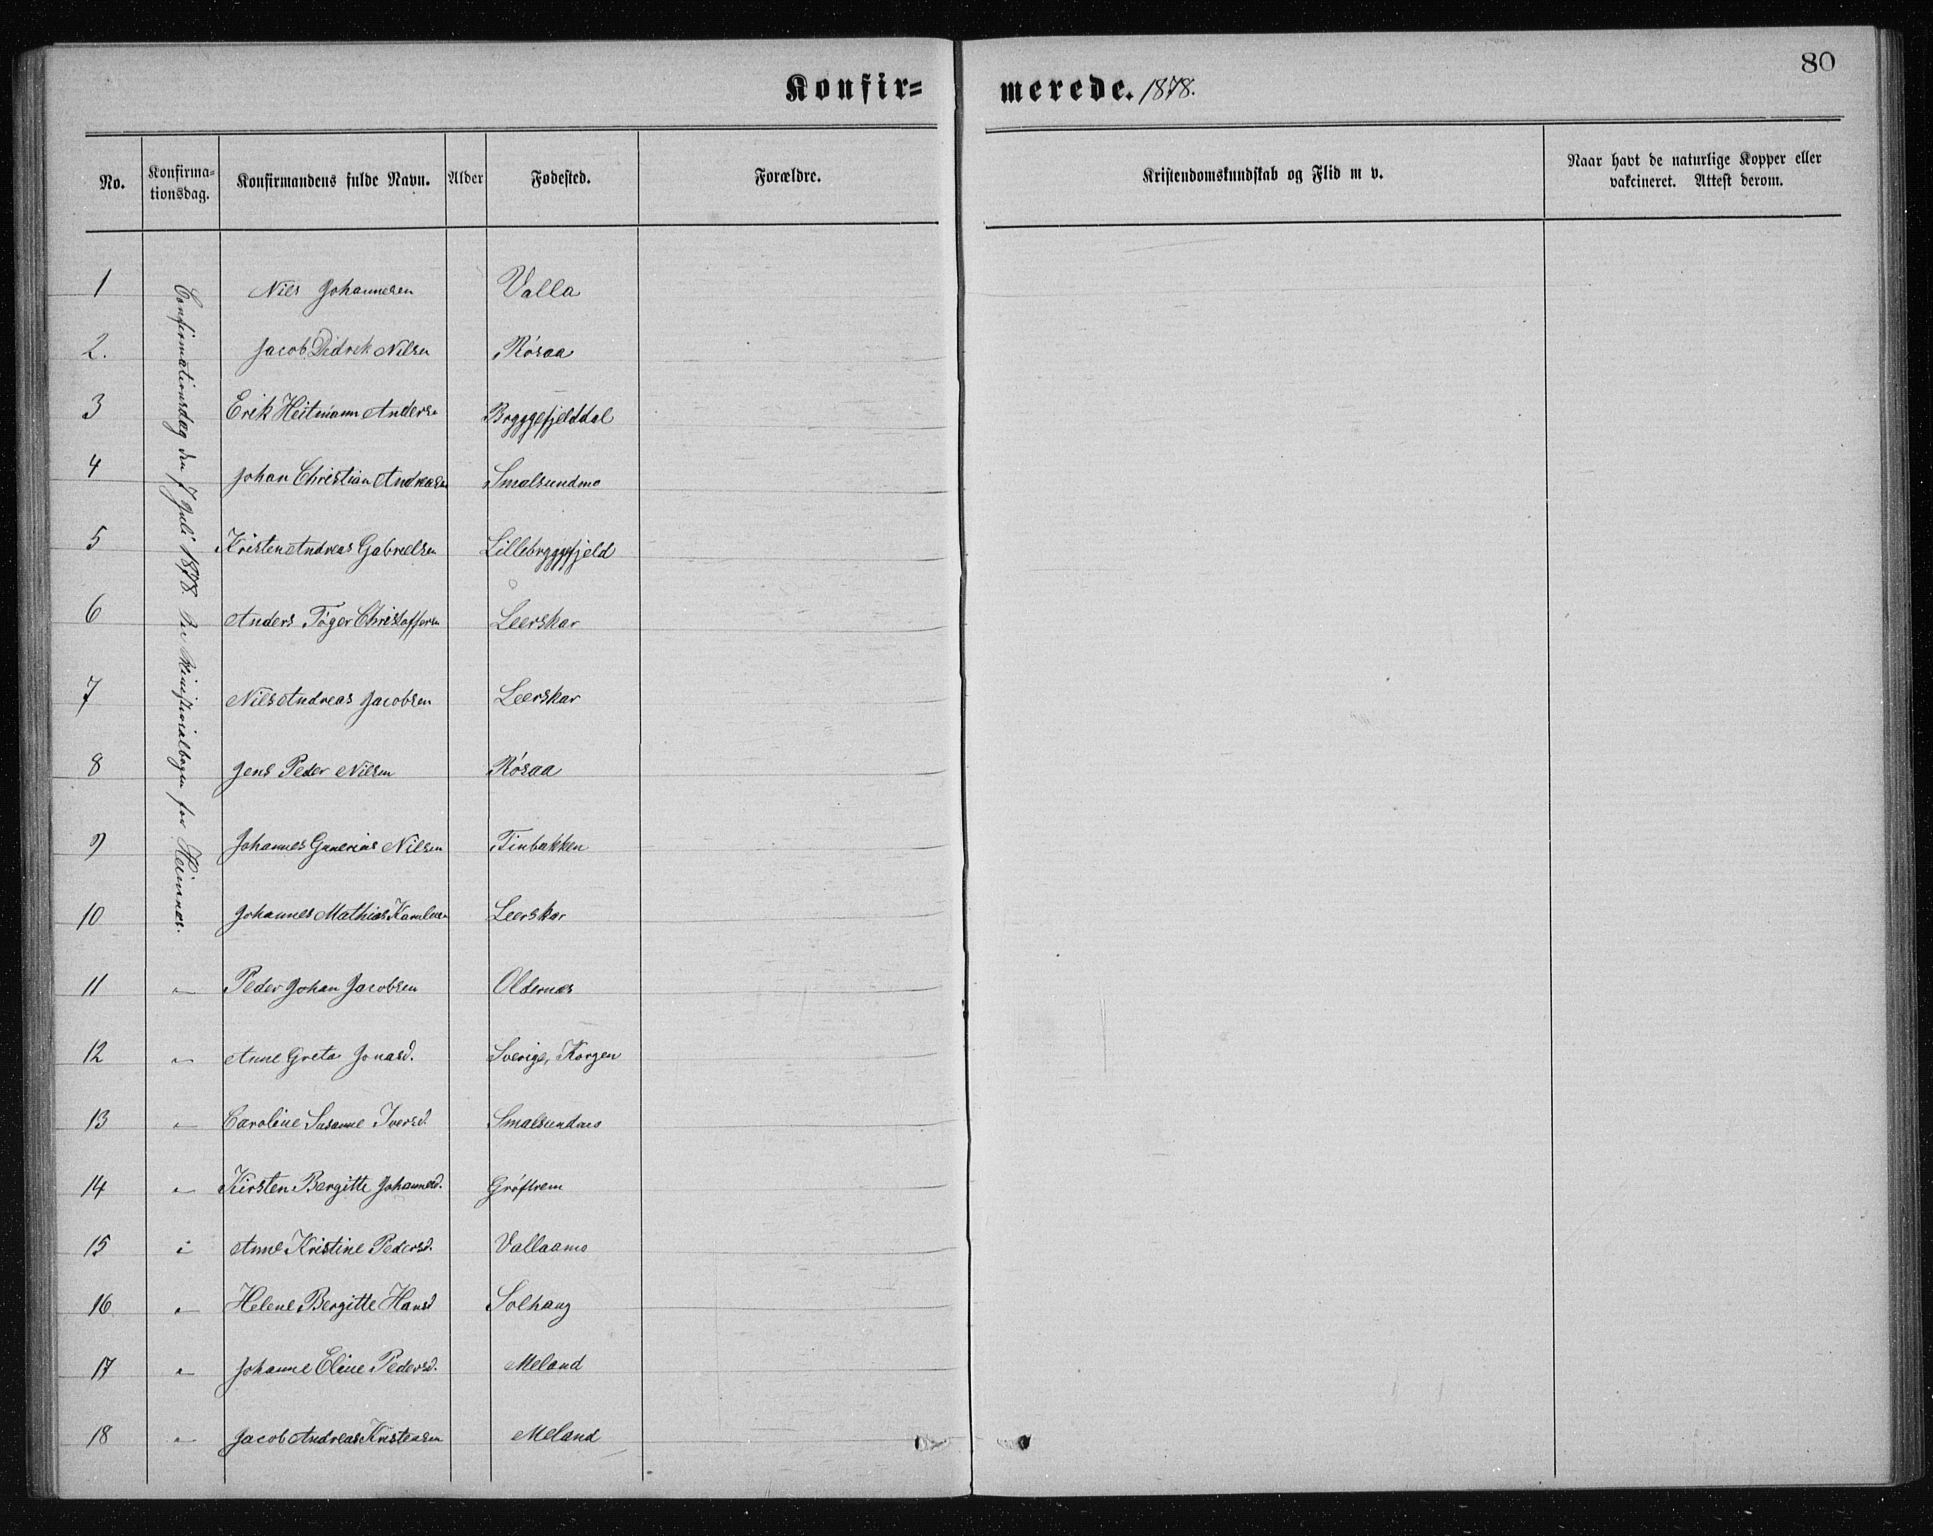 80
Konfir=merede. 1878.
No. Konfirma=tionsdag. Konfirmandens fulde Navn. Alder Fødested. Forældre. Kristendomskundskab og Flid m v. Naar havt de naturlige Kopper eller vakcineret. Attest derom.
Confirmationsdag den 7 Juli 1878. Se Ministerialbogen for Hemnes.
1 Nils Johannesen Valla
2. Jacob Didrek Nilsen Røsaa
3 Erik Heitmann Anders Bryggefjelddal
4 Johan Christian Andreasen Smalsundmo
5 Kristen Andreas Gabrielsen Lillebryggefjeld
6 Anders Tøger Christoffersen Leerskar
7 Nils Andreas Jacobsen Leerskar
8 Jens Peder Nilsen Røsaa
9 Johannes Gunerius Nilsen Finbakken
10 Johannes Mathias Leerskar
11 " Peder Johan Jacobsen Oldernes
12 " Anne Greta Jonasd. Sverige, Korgen
13 " Caroline Susanne Iversd. Smalsundmo
14 " Kirsten Bergitte Johannesd. Grøftrem
15 " Anne Kristine Pedersd. Vallaamo
16 " Helene Bergitte Hansd Solhaug
17 " Johanne Eline Pedersd. Meland
18 " Jacob Andreas Kristensen Meland